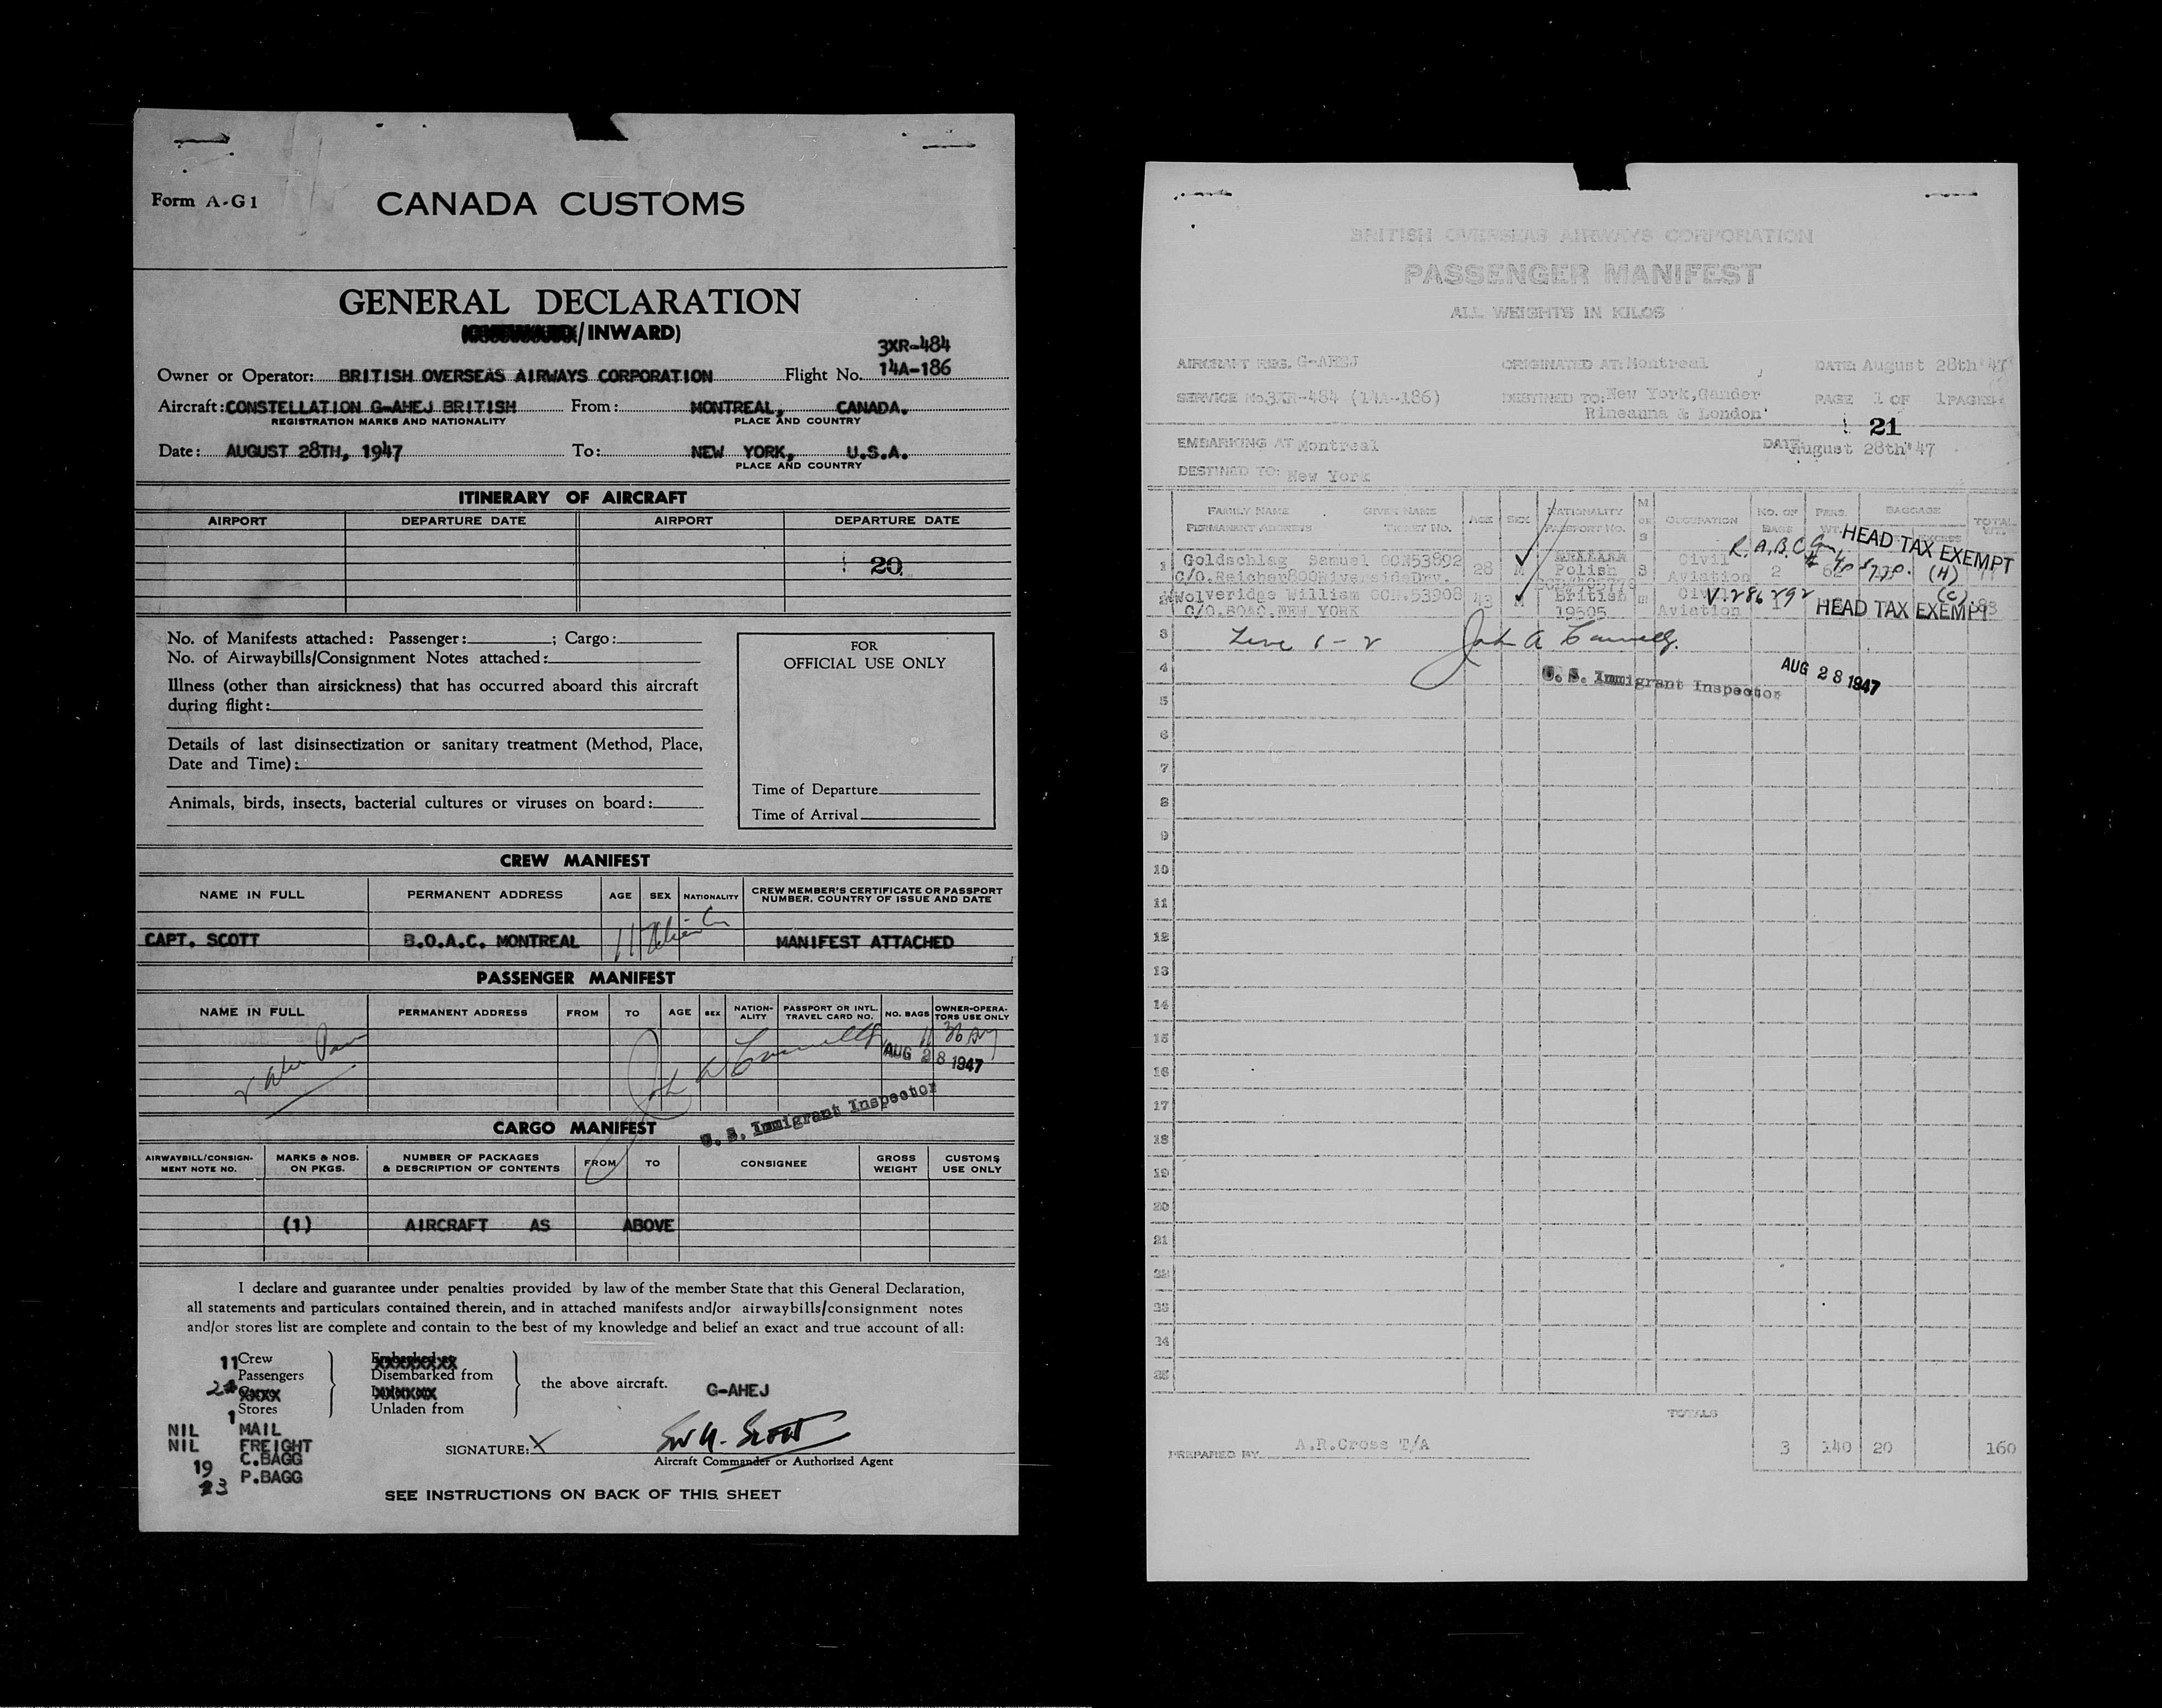 Form A-G1
CANADA CUSTOMS
GENERAL DECLARATION
/INWARD)
3XR-484
Owner or Operator: BRITISH OVERSEAS AIRWAYS CORPORATION Flight No. 14A-186
Aircraft: CONSTELLATION G-AHEJ BRITISH From: MONTREAL, CANADA.
REGISTRATION MARKS AND NATIONALITY PLACE AND COUNTRY
Date: AUGUST 28TH, 1947 To: NEW YORK, U.S.A.
PLACE AND COUNTRY
ITINERARY OF AIRCRAFT
AIRPORT DEPARTURE DATE AIRPORT DEPARTURE DATE
20
No. of Manifests attached: Passenger: ; Cargo:
No. of Airwaybills/Consignment Notes attached:
Illness (other than airsickness) that has occurred aboard this aircraft
during flight:
Details of last disinsectization or sanitary treatment (Method, Place,
Date and Time):
Animals, birds, insects, bacterial cultures or viruses on board:
FOR
OFFICIAL USE ONLY
Time of Departure
Time of Arrival
CREW MANIFEST
NAME IN FULL PERMANENT ADDRESS AGE SEX NATIONALITY CREW MEMBER'S CERTIFICATE OR PASSPORT
NUMBER, COUNTRY OF ISSUE AND DATE
CAPT. SCOTT B.O.A.C. MONTREAL 11 MANIFEST ATTACHED
PASSENGER MANIFEST
NAME IN FULL PERMANENT ADDRESS FROM TO AGE SEX NATION-
ALITY PASSPORT OR INTL.
TRAVEL CARD NO. NO. BAGS OWNER-OPERA-
TORS USE ONLY
AUG 28 1947
U. S. Immigrant Inspector
CARGO MANIFEST
AIRWAYBILL/CONSIGN-
MENT NOTE NO. MARKS & NOS.
ON PKGS. NUMBER OF PACKAGES
& DESCRIPTION OF CONTENTS FROM TO CONSIGNEE GROSS
WEIGHT CUSTOMS
USE ONLY
(1) AIRCRAFT AS ABOVE
I declare and guarantee under penalties provided by law of the member State that this General Declaration,
all statements and particulars contained therein, and in attached manifests and/or airwaybills/consignment notes
and/or stores list are complete and contain to the best of my knowledge and belief an exact and true account of all:
11 Crew
Passengers Disembarked from the above aircraft. G-AHEJ
2
1 Stores Unladen from
NIL MAIL
NIL FREIGHT
19 C.BAGG
23 P.BAGG
SIGNATURE: X
Aircraft Commander or Authorized Agent
SEE INSTRUCTIONS ON BACK OF THIS SHEET
BRITISH OVERSEAS AIRWAYS CORPORATION
PASSENGER MANIFEST
ALL WEIGHTS IN KILOS
AIRCRAFT REG. G-AHEJ ORIGINATED AT: Montreal DATE: August 28th'47
SERVICE No. 3XR-484 (14A-186) DESTINED TO: New York, Gander PAGE 1 OF 1 PAGES
Rineanna & London
21
EMBARKING AT Montreal DATE August 28th'47
DESTINED TO: New York
FAMILY NAME GIVEN NAME AGE SEX NATIONALITY M OCCUPATION NO. OF PERS. BAGGAGE TOTAL
PERMANENT ADDRESS TICKET NO. PASSPORT NO. S BAGS WT. EXCESS WT.
HEAD TAX EXEMPT
1 Goldschlag Samuel OCN53892 28 M Polish S Civil Aviation 2 62 (H)
C/O.Reicher800RiversideDrv.
2 Wolveridge William OCN.53908 43 M British m Civil Aviation 1 V-286292 (C)
C/O.BOAC.NEW YORK 19605
HEAD TAX EXEMPT
3 Line 1-2 John A Connelly
4 U. S. Immigrant Inspector AUG 28 1947
5
6
7
8
9
10
11
12
13
14
15
16
17
18
19
20
21
22
23
24
25
TOTALS
PREPARED BY A.R.Cross T/A 3 140 20 160